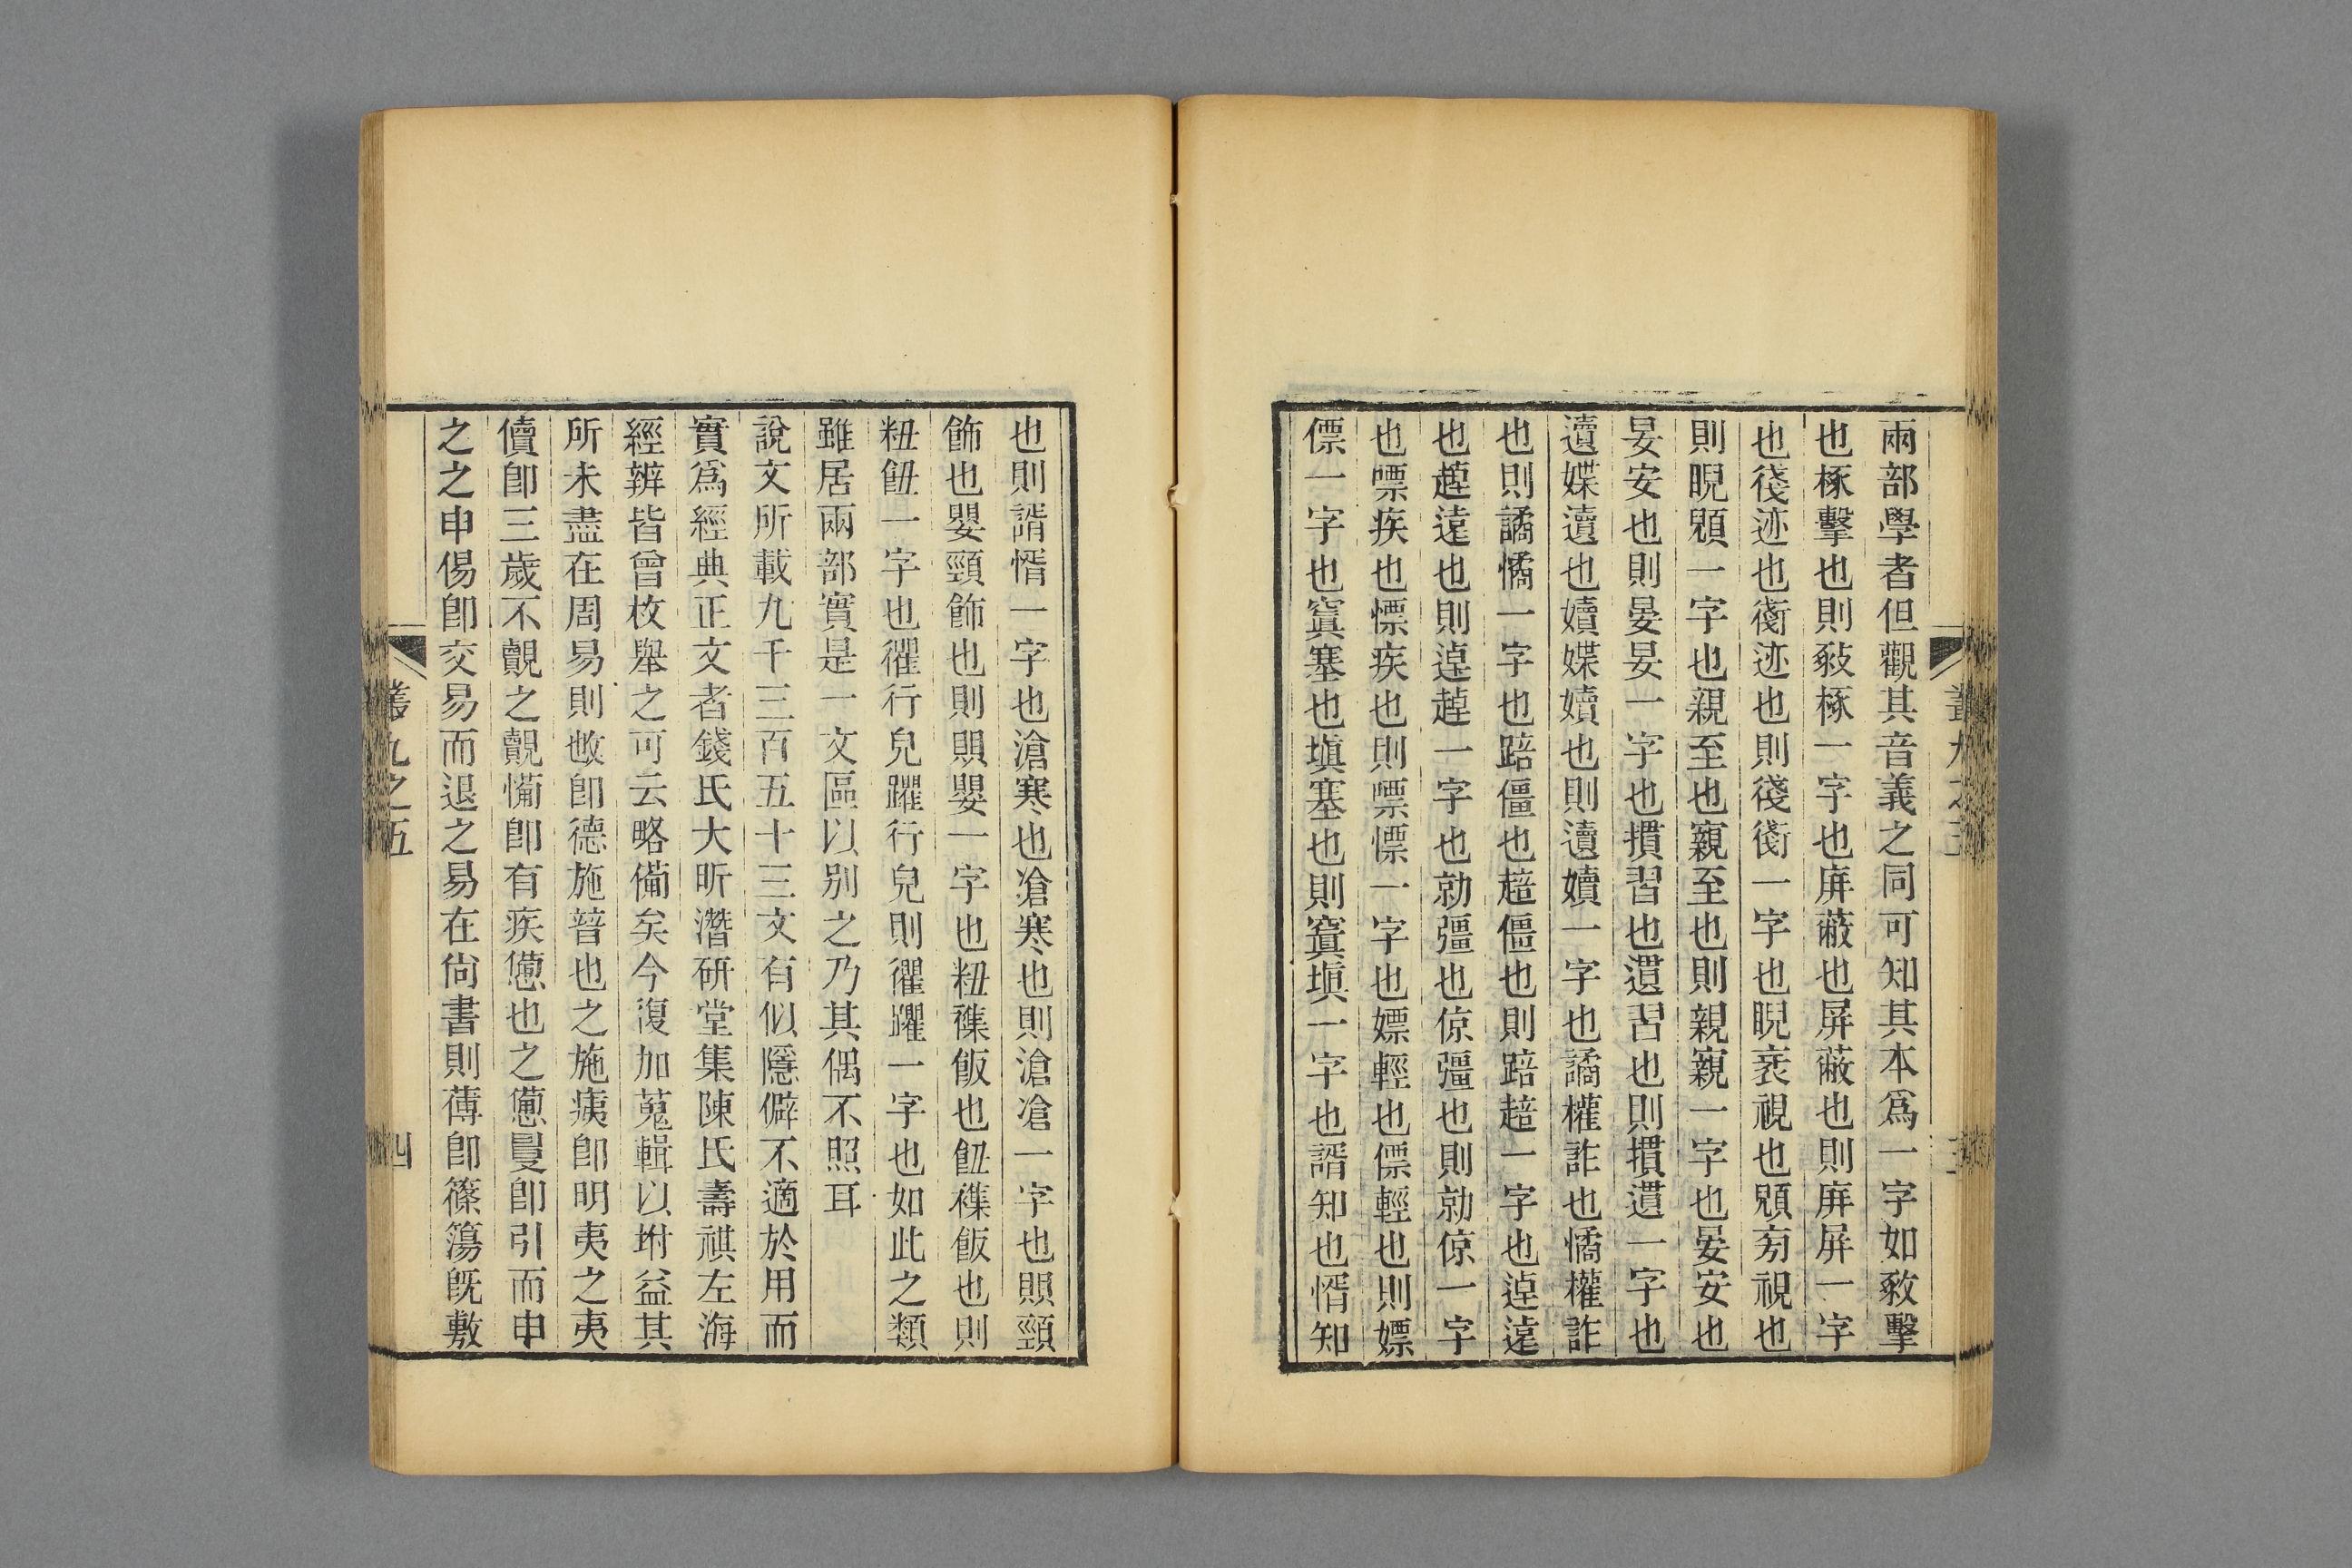 兩部學者但觀其音義之同可知其本爲一字如敎擊
也椓擊也則㩁椓一字也庰蔽也屏蔽也則庰屏一字
也後迹也衟迹也則後衟一字也睨衺視也䫌旁視也
則睨䫌一字也親至也寴至也則親寴一字也晏安也
妟安也則晏妟一字也摜習也遦習也則摜遦一字也
遺媟遺也嬻媟嬻也則遺嬻一字也譎權詐也憰權詐
也則譎憰一字也踣僵也䞳僵也則踣䞳一字也逴遠
也趠遠也則逴趠一字也勍彊也倞彊也則勍倞一字
也嘌疾也慓疾也則嘌慓一字也嫖輕也僄輕也則嫖
僄一字也窴塞也塡塞也則窴塡一字也諝知也惰知
也則諝惰一字也滄寒也凔寒也則滄凔一字也賏頸
飾也嬰頸飾也則賏嬰一字也粈䊞飯也飪䊞飯也則
粈飪一字也忂行皃躣行皃則忂躣一字也如此之類
雖居兩部實是一文區以別之乃其偶不照耳
說文所載九千三百五十三文有似隱僻不適於用而
實爲經典正文者錢氏大昕潛研堂集陳氏壽祺左海
經辨皆曾枚舉之可云略備矣今復加蒐輯以坿益其
所未盡在周易則𢼊卽德施普也之施痍卽明夷之夷
儥卽三歲不覿之覿㤄卽有疾憊也之憊𢑚卽引而申
之之申傷卽交易而退之易在尙書則䔭卽篠簜旣敷
叢九之五
四